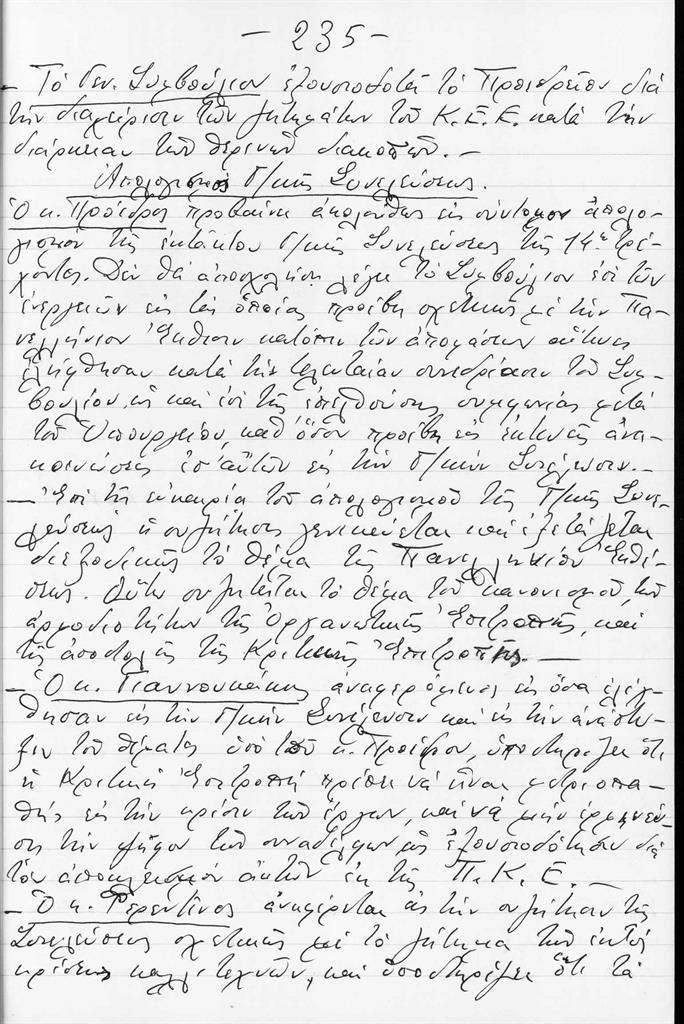 - 235 -
- Τό Γεν. Συμβούλιον ἐξουσιοδοτεῖ τό Προεδρεῖον διά
τήν διαχείρισιν τῶν ζητημάτων τοῦ Κ.Ε.Ε. κατά τήν
διάρκειαν τῶν θερινῶν διακοπῶν. -
Ἀπολογισμός Γ/κῆς Συνελεύσεως.
Ὁ κ. Πρόεδρος προβαίνει ἀκολούθως εἰς σύντομον ἀπολο-
γισμόν τῆς ἐκτάκτου Γ/κῆς Συνελεύσεως τῆς 14ης τρέ-
χοντος. Δέν θά ἀπασχολήσῃ λέγει τό Συμβούλιον ἐπί τῶν
ἐνεργειῶν εἰς τάς ὁποίας προέβη σχετικῶς μέ τήν Πα-
νελλήνιον Ἔκθεσιν κατόπιν τῶν ἀποφάσεων αἵτινες
ἐλήφθησαν κατά τήν τελευταίαν συνεδρίασιν τοῦ Συμ-
βουλίου, ὡς καί ἐπί τῆς ἐπελθούσης συμφωνίας μετά
τοῦ Ὑπουργείου, καθ' ὅσον προέβη εἰς ἐκτενεῖς ἀνα-
κοινώσεις ἐπ' αὐτῶν εἰς τήν Γ/κήν Συνέλευσιν. -
- Ἐπί τῇ εὐκαιρίᾳ τοῦ ἀπολογισμοῦ τῆς Γ/κῆς Συνε-
λεύσεως ἡ συζήτησις γενικεύεται καί ἐξετάζεται
διεξοδικῶς τό θέμα τῆς Πανελληνίου Ἐκθέ-
σεως. Οὕτω συζητεῖται τό θέμα τοῦ κανονισμοῦ, τῶν
ἁρμοδιοτήτων τῆς Ὀργανωτικῆς Ἐπιτροπῆς, καί
τῆς ἀποστολῆς τῆς Κριτικῆς Ἐπιτροπῆς. -
- Ὁ κ. Γιαννουκάκης ἀναφερόμενος εἰς ὅσα ἐλέχ-
θησαν εἰς τήν Γ/κήν Συνέλευσιν καί εἰς τήν ἀνάπτυ-
ξιν τοῦ θέματος ὑπό τοῦ κ. Προέδρου, ὑποστηρίζει ὅτι
ἡ Κριτική Ἐπιτροπή πρέπει νά εἶναι μετριοπα-
θής εἰς τήν κρίσιν τῶν ἔργων, καί νά μήν ἑρμηνεύ-
σῃ τήν ψῆφον τῶν συναδέλφων ὡς ἐξουσιοδότησιν διά
τόν ἀποκλεισμόν αὐτῶν ἐκ τῆς Π.Κ.Ε. -
- Ὁ κ. Φερεντῖνος ἀναφέρεται εἰς τήν συζήτησιν τῆς
Συνελεύσεως σχετικῶς μέ τό ζήτημα τῶν ἐκτός
κρίσεως καλλιτεχνῶν, καί ὑποστηρίζει ὅτι τά